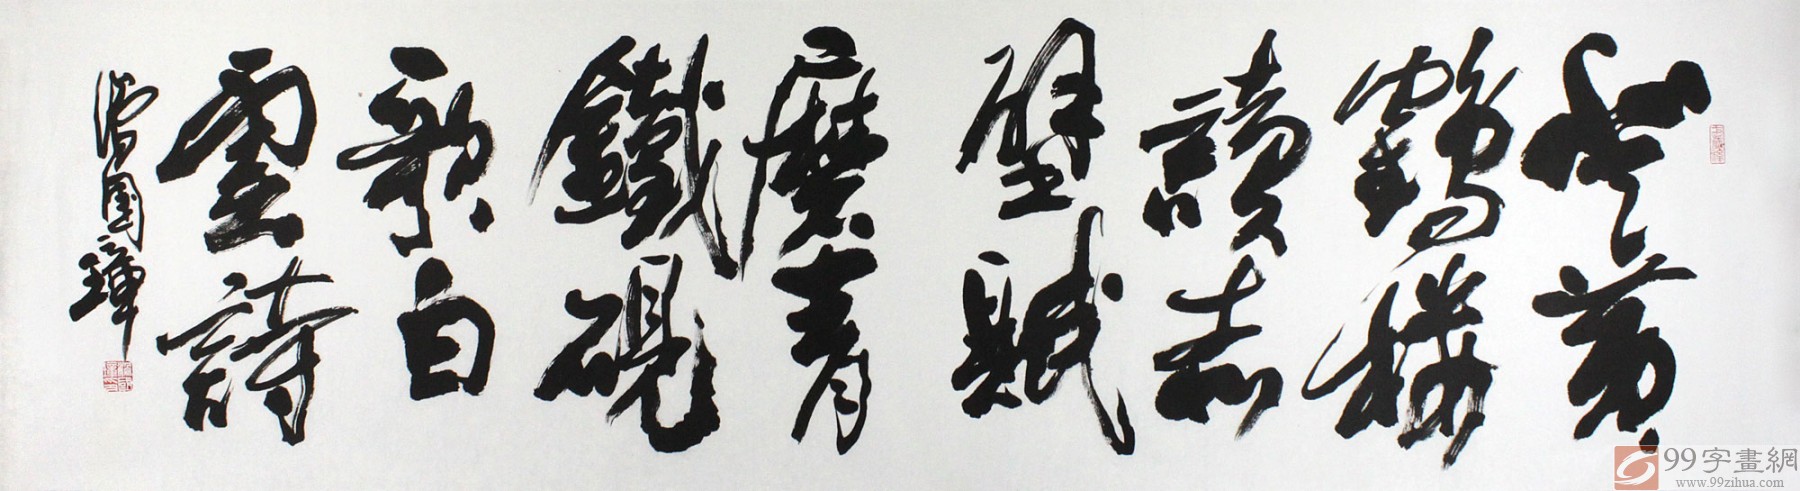 登黄
鶴樓
讀赤
壁賦
磨青
鐵硯
歌白
雲詩
潘國璋
99字畫網
www.99zihua.com